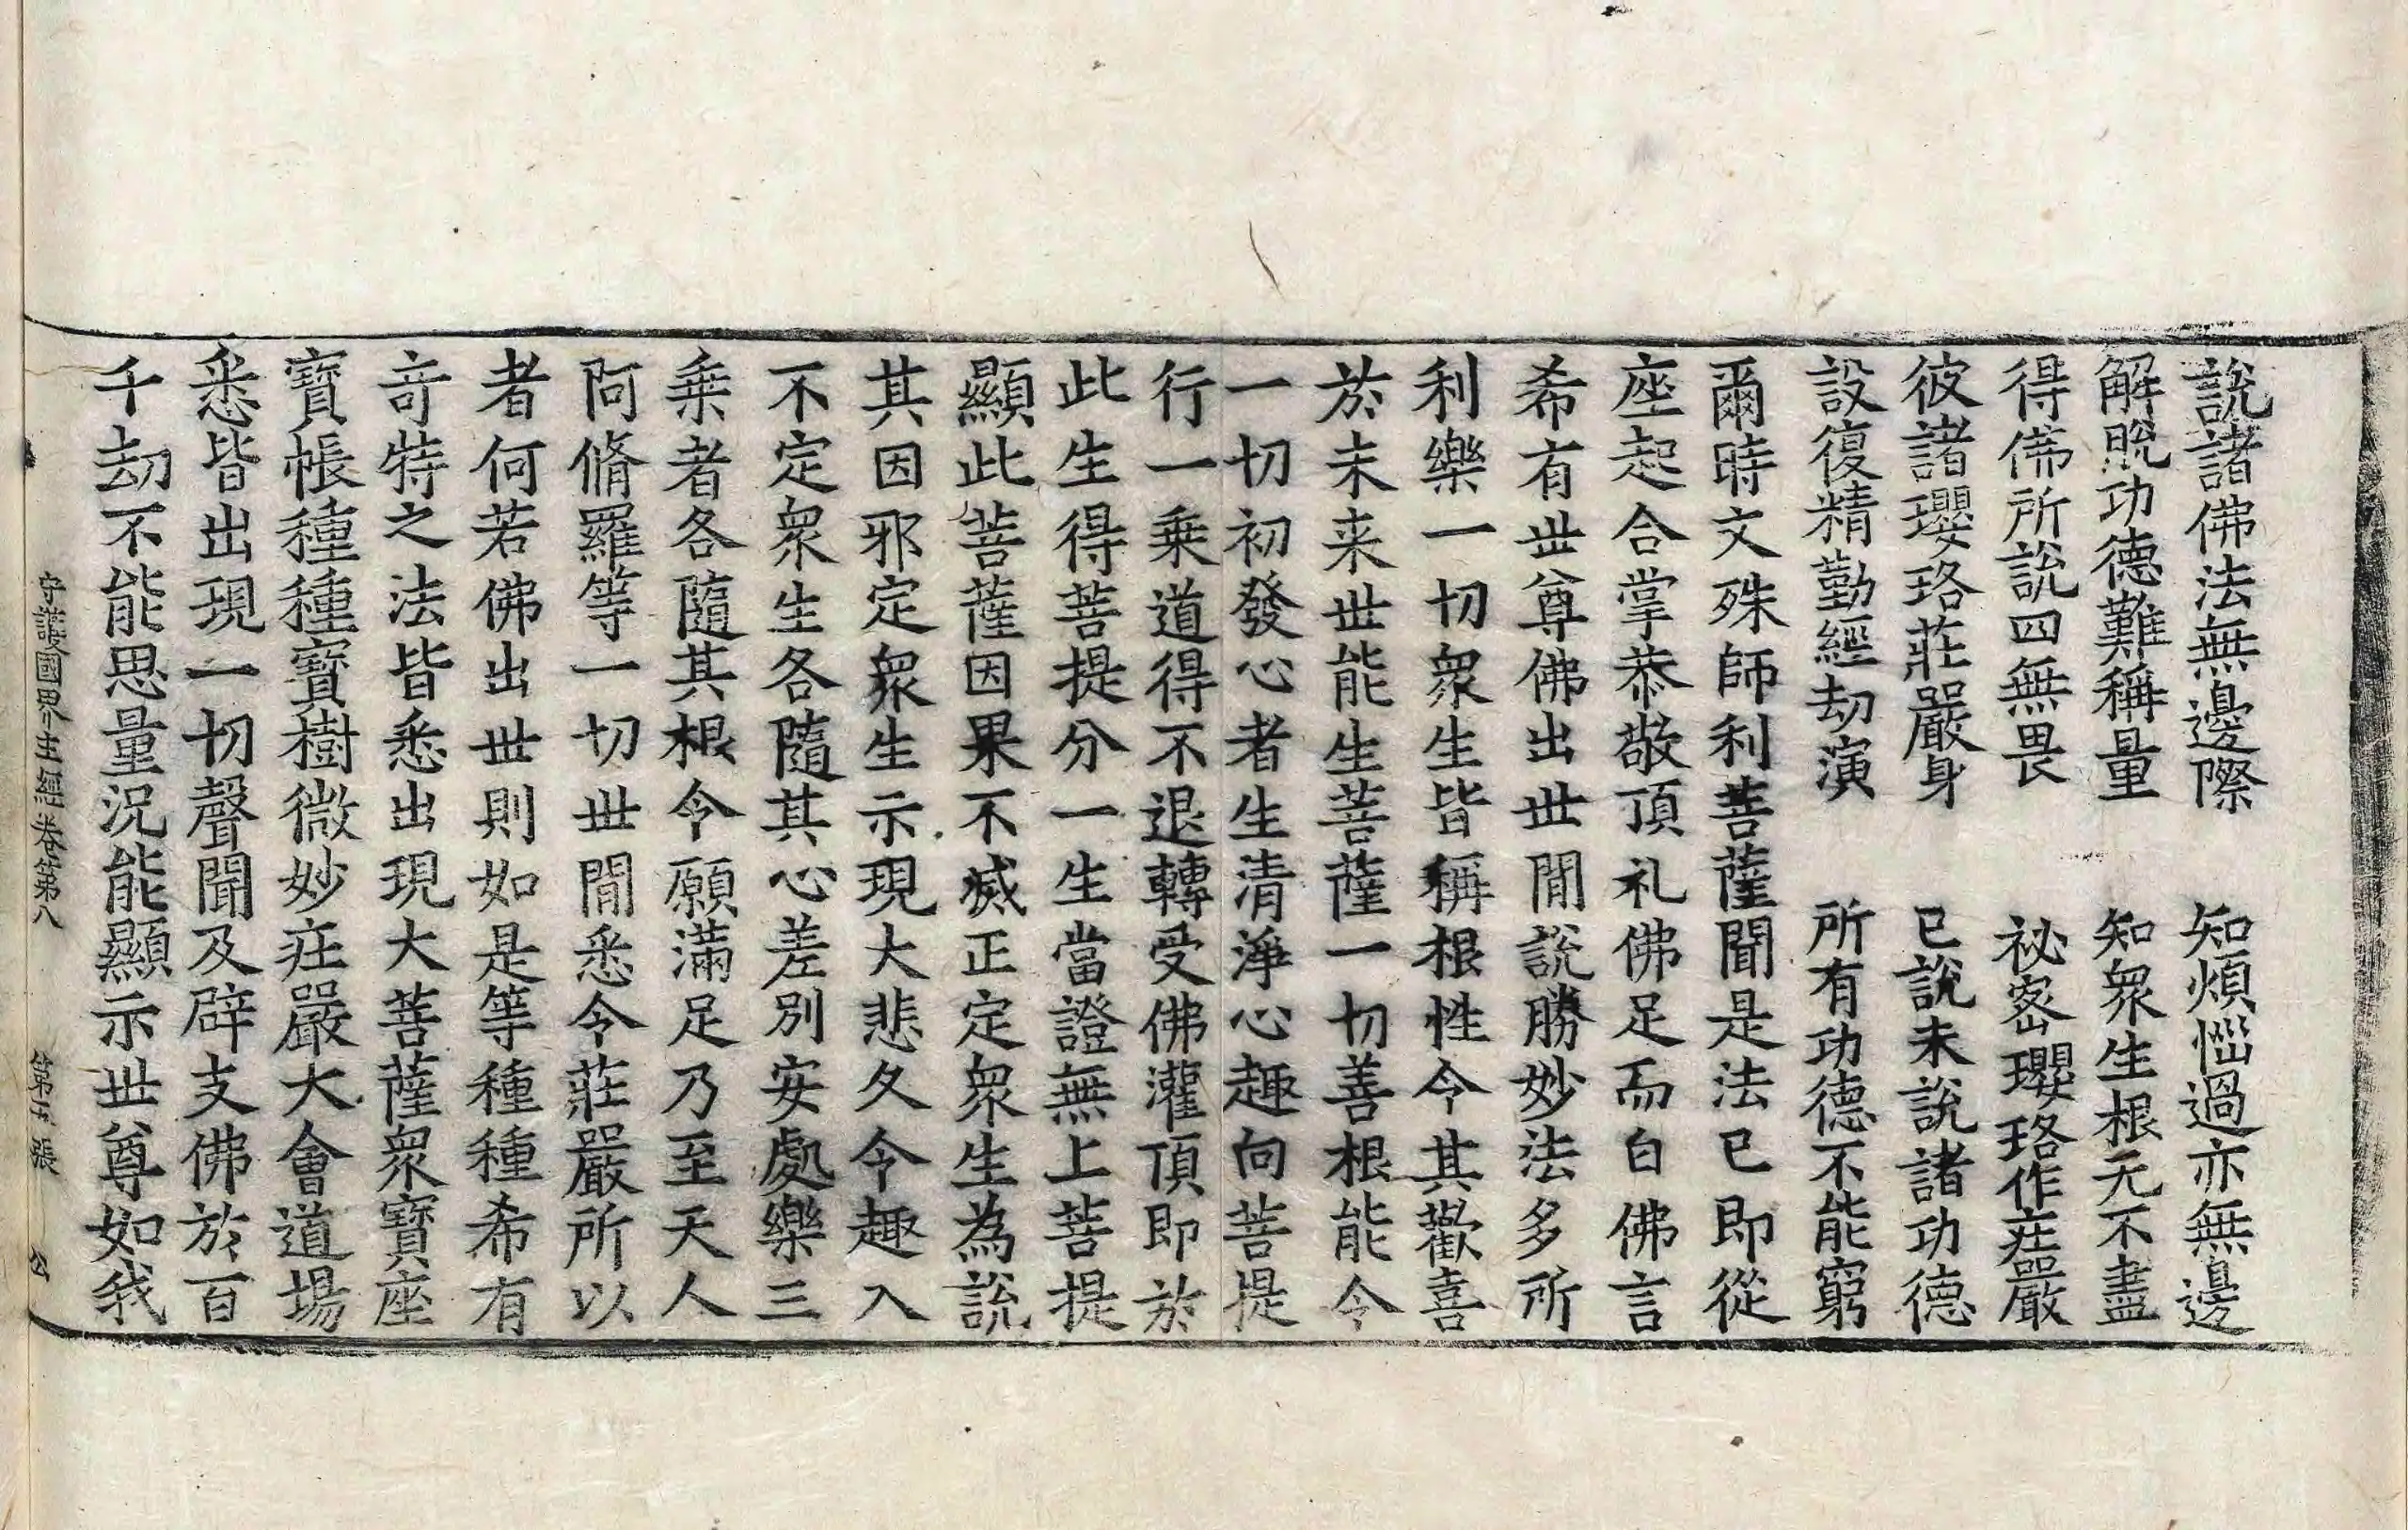 說諸佛法無邊際　知煩惱過亦無邊
解脫功德難稱量　知衆生根无不盡
得佛所說四無畏　祕密瓔珞作庄嚴
彼諸瓔珞莊嚴身　已說未說諸功德
設復精勤經劫演　所有功德不能窮
爾時文殊師利菩薩聞是法已即從
座起合掌恭敬頂礼佛足而白佛言
希有世尊佛出世間說勝妙法多所
利樂一切衆生皆稱根性令其歡喜
於未来世能生菩薩一切善根能令
一切初發心者生清淨心趣向菩提
行一乘道得不退轉受佛灌頂即於
此生得菩提分一生當證無上菩提
顯此菩薩因果不滅正定衆生為說
其因邪定衆生示現大悲久令趣入
不定衆生各隨其心差別安處樂三
乘者各隨其根令願滿足乃至天人
阿脩羅等一切世間悉令莊嚴所以
者何若佛出世則如是等種種希有
竒特之法皆悉出現大菩薩衆寶座
寶帳種種寶樹微妙庄嚴大會道場
悉皆出現一切聲聞及辟支佛於百
千劫不能思量況能顯示世尊如我
守護國界主經卷第八　第五張　公